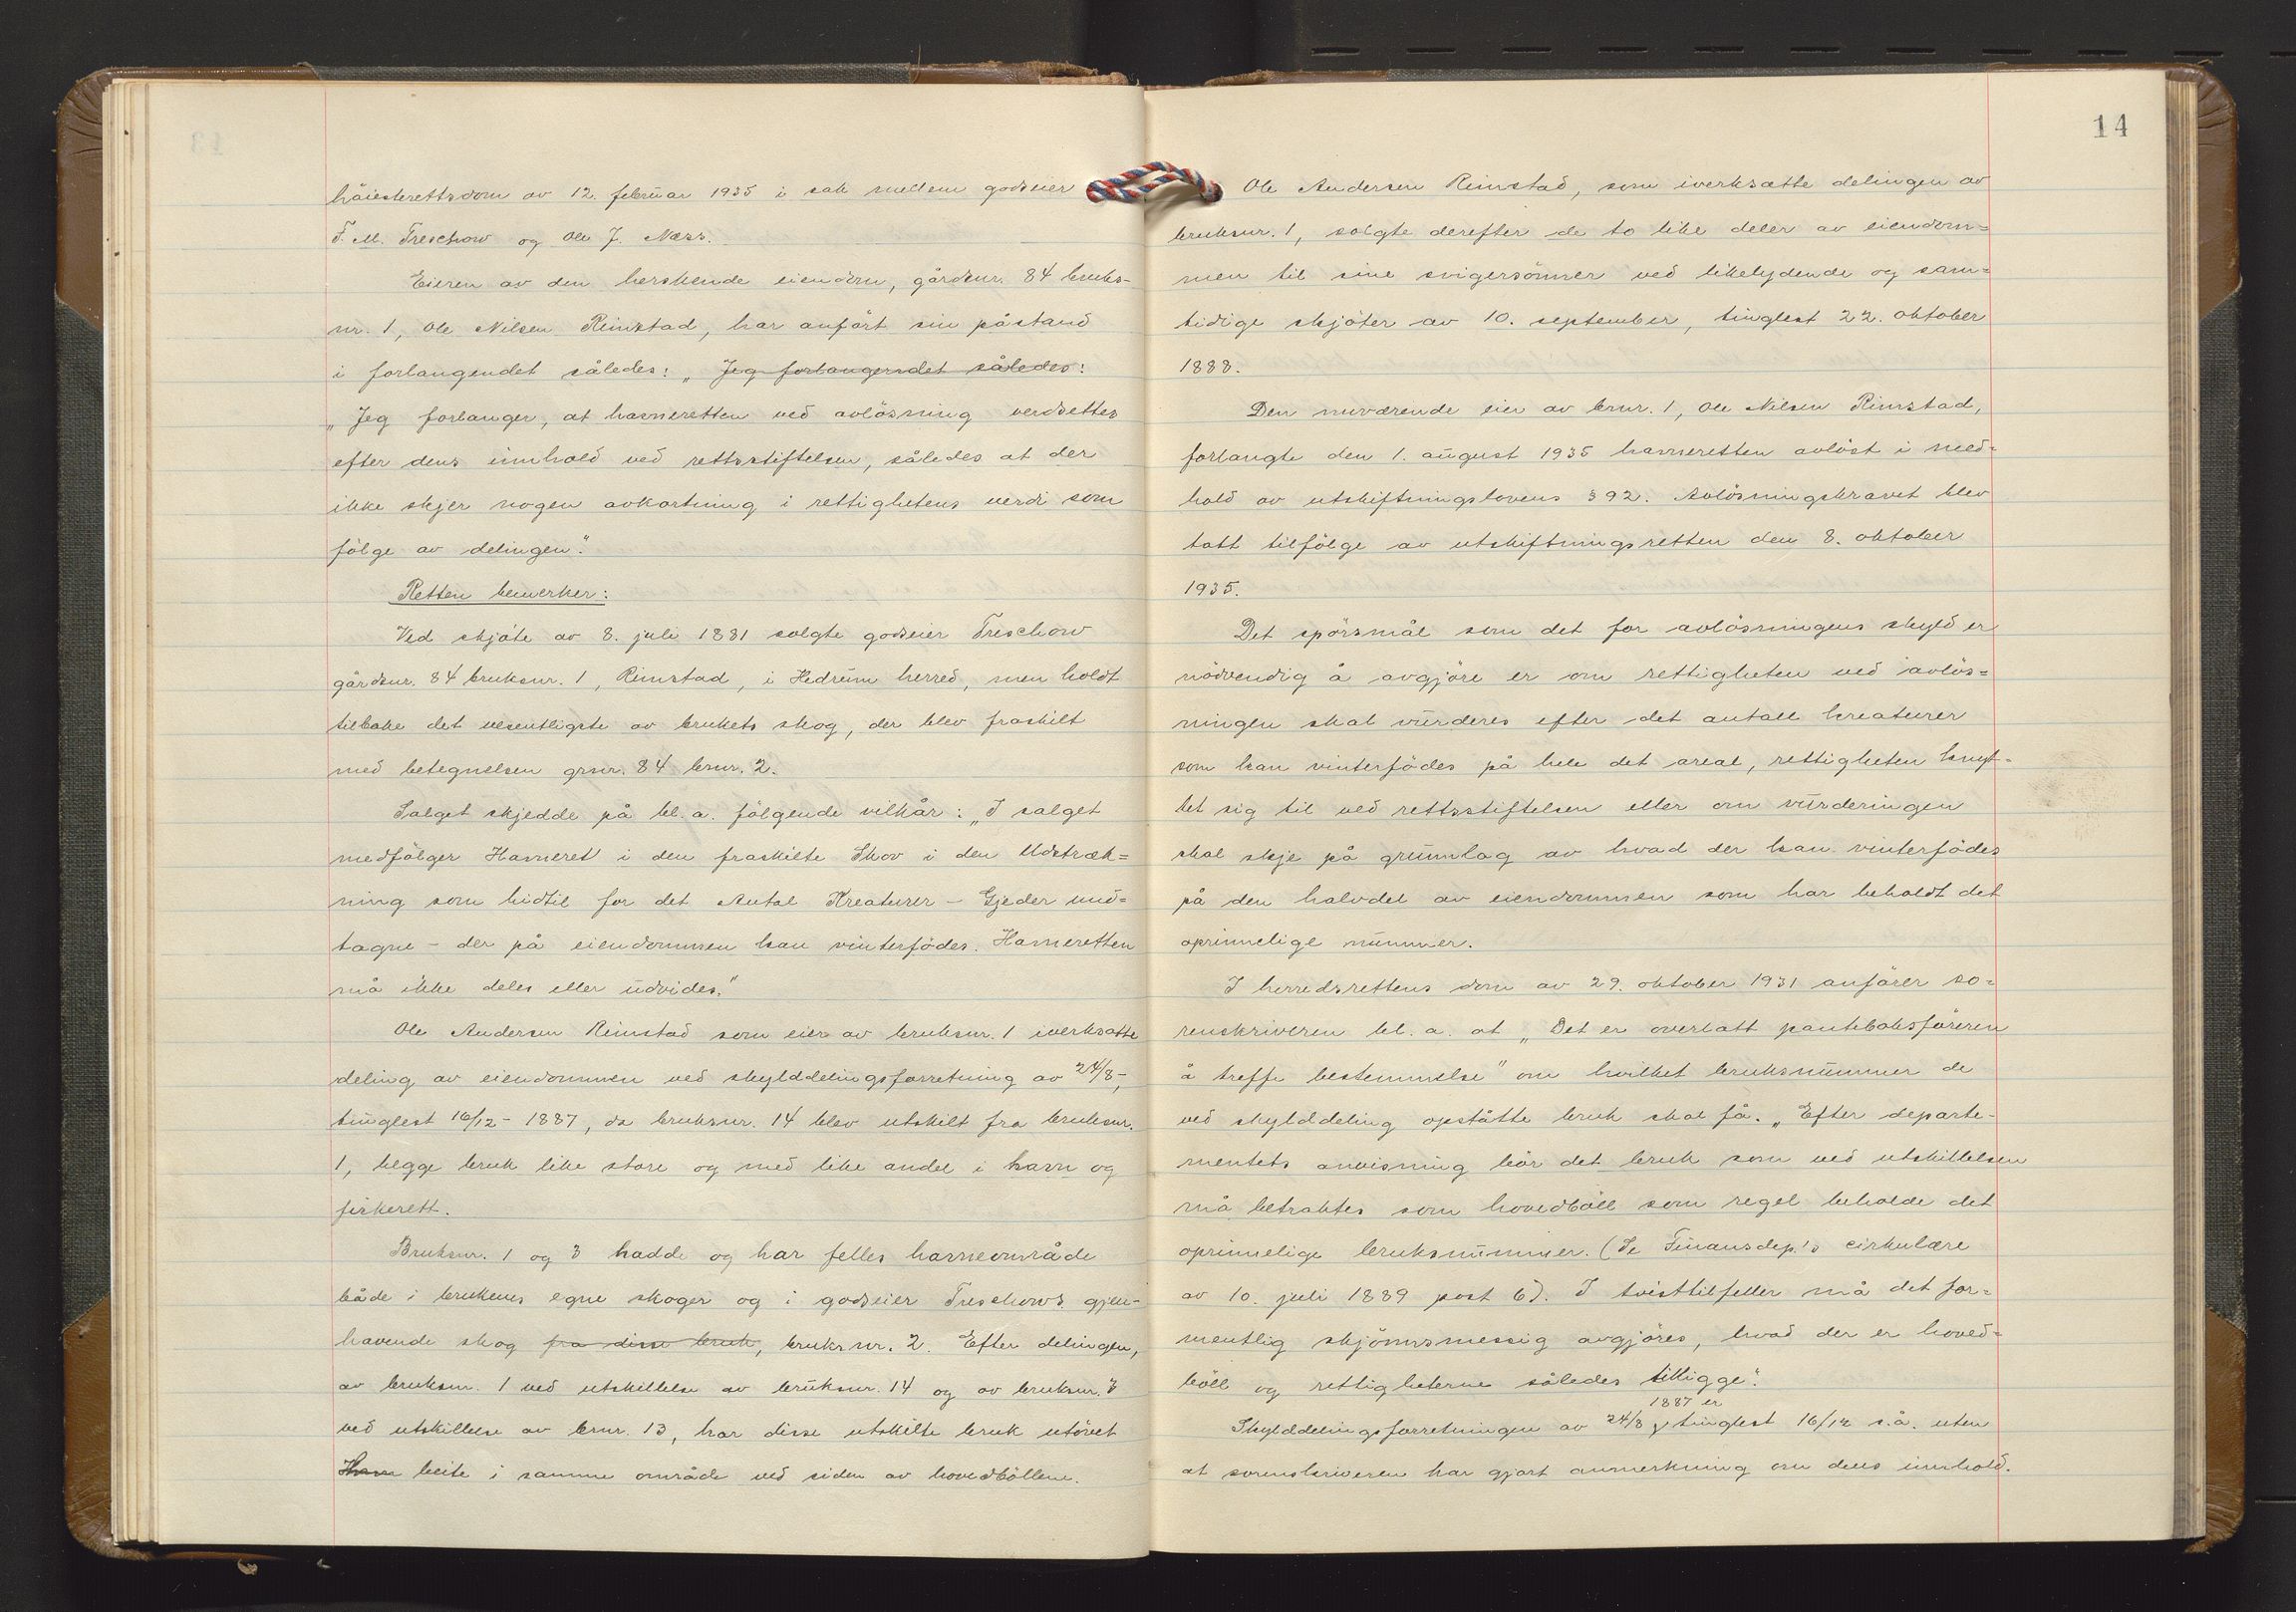 höiesterettsdom av 12. februar 1935 i sak mellem godseier
F. M. Treschow og Ole J. Næss.
Eieren av den herskende eiendom, gårdsnr. 84 bruks-
nr. 1, Ole Nilsen Rimstad, har anfört sin påstand
i forlangendet således: „Jeg forlangendet således:
„Jeg forlanger, at havneretten ved avlösning verdsettes
efter dens innhold ved rettsstiftelsen, således at der
ikke skjer nogen avkortning i rettighetens verdi som
fölge av delingen".
Retten bemerker:
Ved skjöte av 8. juli 1881 solgte godseier Treschow
gårdsnr. 84 bruksnr. 1, Rimstad, i Hedrum herred, men holdt
tilbake det vesentligste av brukets skog, der blev fraskilt
med betegnelsen grnr. 84 brnr. 2.
Salget skjedde på bl. a. fölgende vilkår: „I salget
medfölger Havneret i den fraskilte Skov i den Udstræk=
ning som hidtil for det Antal Kreaturer - Gjeder und=
tagne - der på eiendommen kan vinterfödes. Havneretten
må ikke deles eller udvides."
Ole Andersen Rimstad som eier av bruksnr. 1 iverksatte
deling av eiendommen ved skylddelingsforretning av 24/8-,
tinglest 16/12- 1887, da bruksnr. 14 blev utskilt fra bruksnr.
1, begge bruk like store og med like andel i havn og
fiskerett.
Bruksnr. 1 og 3 hadde og har felles havneområde
både i brukenes egne skoger og i godseier Treschows gjen-
havende skog fra disse bruk, bruksnr. 2. Efter delingen,
av bruksnr. 1 ved utskillelse av bruksnr. 14 og av bruksnr. 3
ved utskillelse av brnr. 13, har disse utskilte bruk utövet
Havn beite i samme område ved siden av hovedböllene.
14
Ole Andersen Rimstad, som iverksatte delingen av
bruksnr. 1, solgte derefter de to like deler av eiendom=
men til sine svigersönner ved likelydende og sam=
tidige skjöter av 10. september, tinglest 22. oktober
1888.
Den nuværende eier av brnr. 1, Ole Nilsen Rimstad,
forlangte den 1. august 1935 havneretten avlöst i med=
hold av utskiftningslovens § 92. Avlösningskravet blev
tatt tilfölge av utskiftningsretten den 8. oktober
1935.
Det spörsmål som det for avlösningens skyld er
nödvendig å avgjöre er om rettigheten ved avlös=
ningen skal vurderes efter det antall kreaturer
som kan vinterfödes på hele det areal, rettigheten knyt=
tet sig til ved rettsstiftelsen eller om vurderingen
skal skje på grunnlag av hvad der kan vinterfödes
på den halvdel av eiendommen som har beholdt det
oprinnelige nummer.
I herredsrettens dom av 29. oktober 1931 anförer so=
renskriveren bl. a. at „Det er overlatt panteboksföreren
å treffe bestemmelse" om hvilket bruksnummer de
ved skylddeling opståtte bruk skal få. „Efter departe-
mentets anvisning bör det bruk som ved utskillelsen
må betraktes som hovedböll som regel beholde det
oprinnelige bruksnummer. (Se Finansdep.'s cirkulære
av 10. juli 1889 post 6). I tvisttilfeller må det for=
mentlig skjönnsmessig avgjöres, hvad der er hoved=
böll og rettigheterne således tilligge".
1887 er
Skylddelingsforretningen av 24/8 tinglest 16/12 s.å. uten
at sorenskriveren har gjort anmerkning om dens innhold.